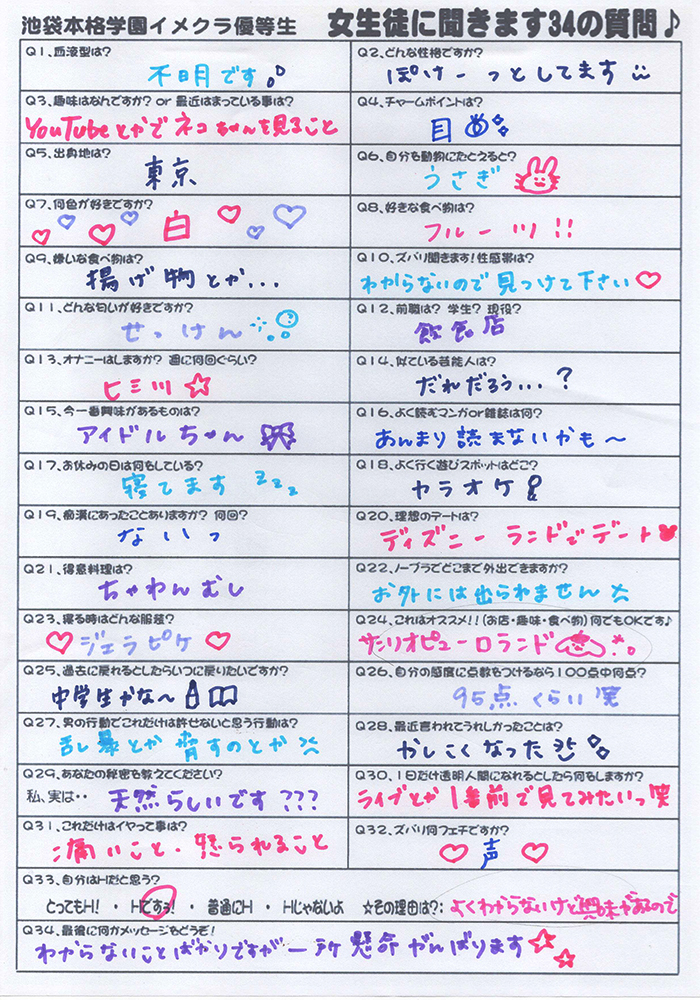 池袋本格学園イメクラ優等生 女生徒に聞きます34の質問♪
Q1、血液型は?
不明です
Q2、どんな性格ですか?
ぽけーっとしてます
Q3、趣味はなんですか? or 最近はまっている事は?
YouTubeとかでネコちゃんを見ること
Q4、チャームポイントは?
目
Q5、出身地は?
東京
Q6、自分を動物にたとえると?
うさぎ
Q7、何色が好きですか?
白
Q8、好きな食べ物は?
フルーツ!!
Q9、嫌いな食べ物は?
揚げ物とか...
Q10、ズバリ聞きます!性感帯は?
わからないので見つけて下さい♡
Q11、どんな匂いが好きですか?
せっけん
Q12、前職は? 学生? 現役?
飲食店
Q13、オナニーはしますか? 週に何回ぐらい?
ヒミツ☆
Q14、似ている芸能人は?
だれだろう...?
Q15、今一番興味があるものは?
アイドルちゃん
Q16、よく読むマンガor雑誌は何?
あんまり読まないかも〜
Q17、お休みの日は何をしている?
寝てます zzz
Q18、よく行く遊びスポットはどこ?
カラオケ
Q19、痴漢にあったことありますか? 何回?
ないっ
Q20、理想のデートは?
ディズニーランドでデート
Q21、得意料理は?
ちゃわんむし
Q22、ノーブラでどこまで外出できますか?
お外には出られません
Q23、寝る時はどんな服装?
♡ジェラピケ♡
Q24、これはオススメ!!(お店・趣味・食べ物)何でもOKです♪
サンリオピューロランド
Q25、過去に戻れるとしたらいつに戻りたいですか?
中学生かな〜
Q26、自分の感度に点数をつけるなら100点中何点?
95点くらい笑
Q27、男の行動でこれだけは許せないと思う行動は?
乱暴とか脅すのとか
Q28、最近言われてうれしかったことは?
かしこくなった
Q29、あなたの秘密を教えてください?
私、実は・・天然らしいです???
Q30、1日だけ透明人間になれるとしたら何をしますか?
ライブとか1番前で見てみたいっ笑
Q31、これだけはイヤって事は?
痛いこと・怒られること
Q32、ズバリ何フェチですか?
♡声♡
Q33、自分はHだと思う?
とってもH! ・ Hですぅ! ・ 普通にH ・ Hじゃないよ ☆その理由は?:よくわからないけど興味があるので
Q34、最後に何かメッセージをどうぞ!
わからないことばかりですが一所懸命がんばります☆☆